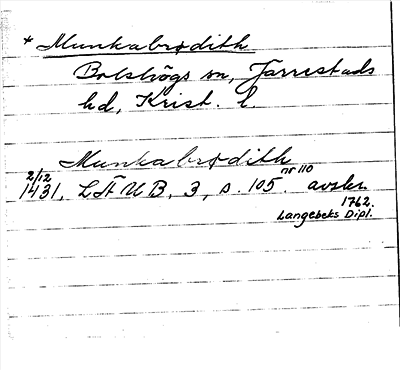 * Munkabrødith
Bolshögs sn, Järrestads
hd, Krist. l.
Munkabrødith
2/12 1431, LÄUB, 3, s. 105 nr 110 avskr.
1762.
Langebeks Dipl.